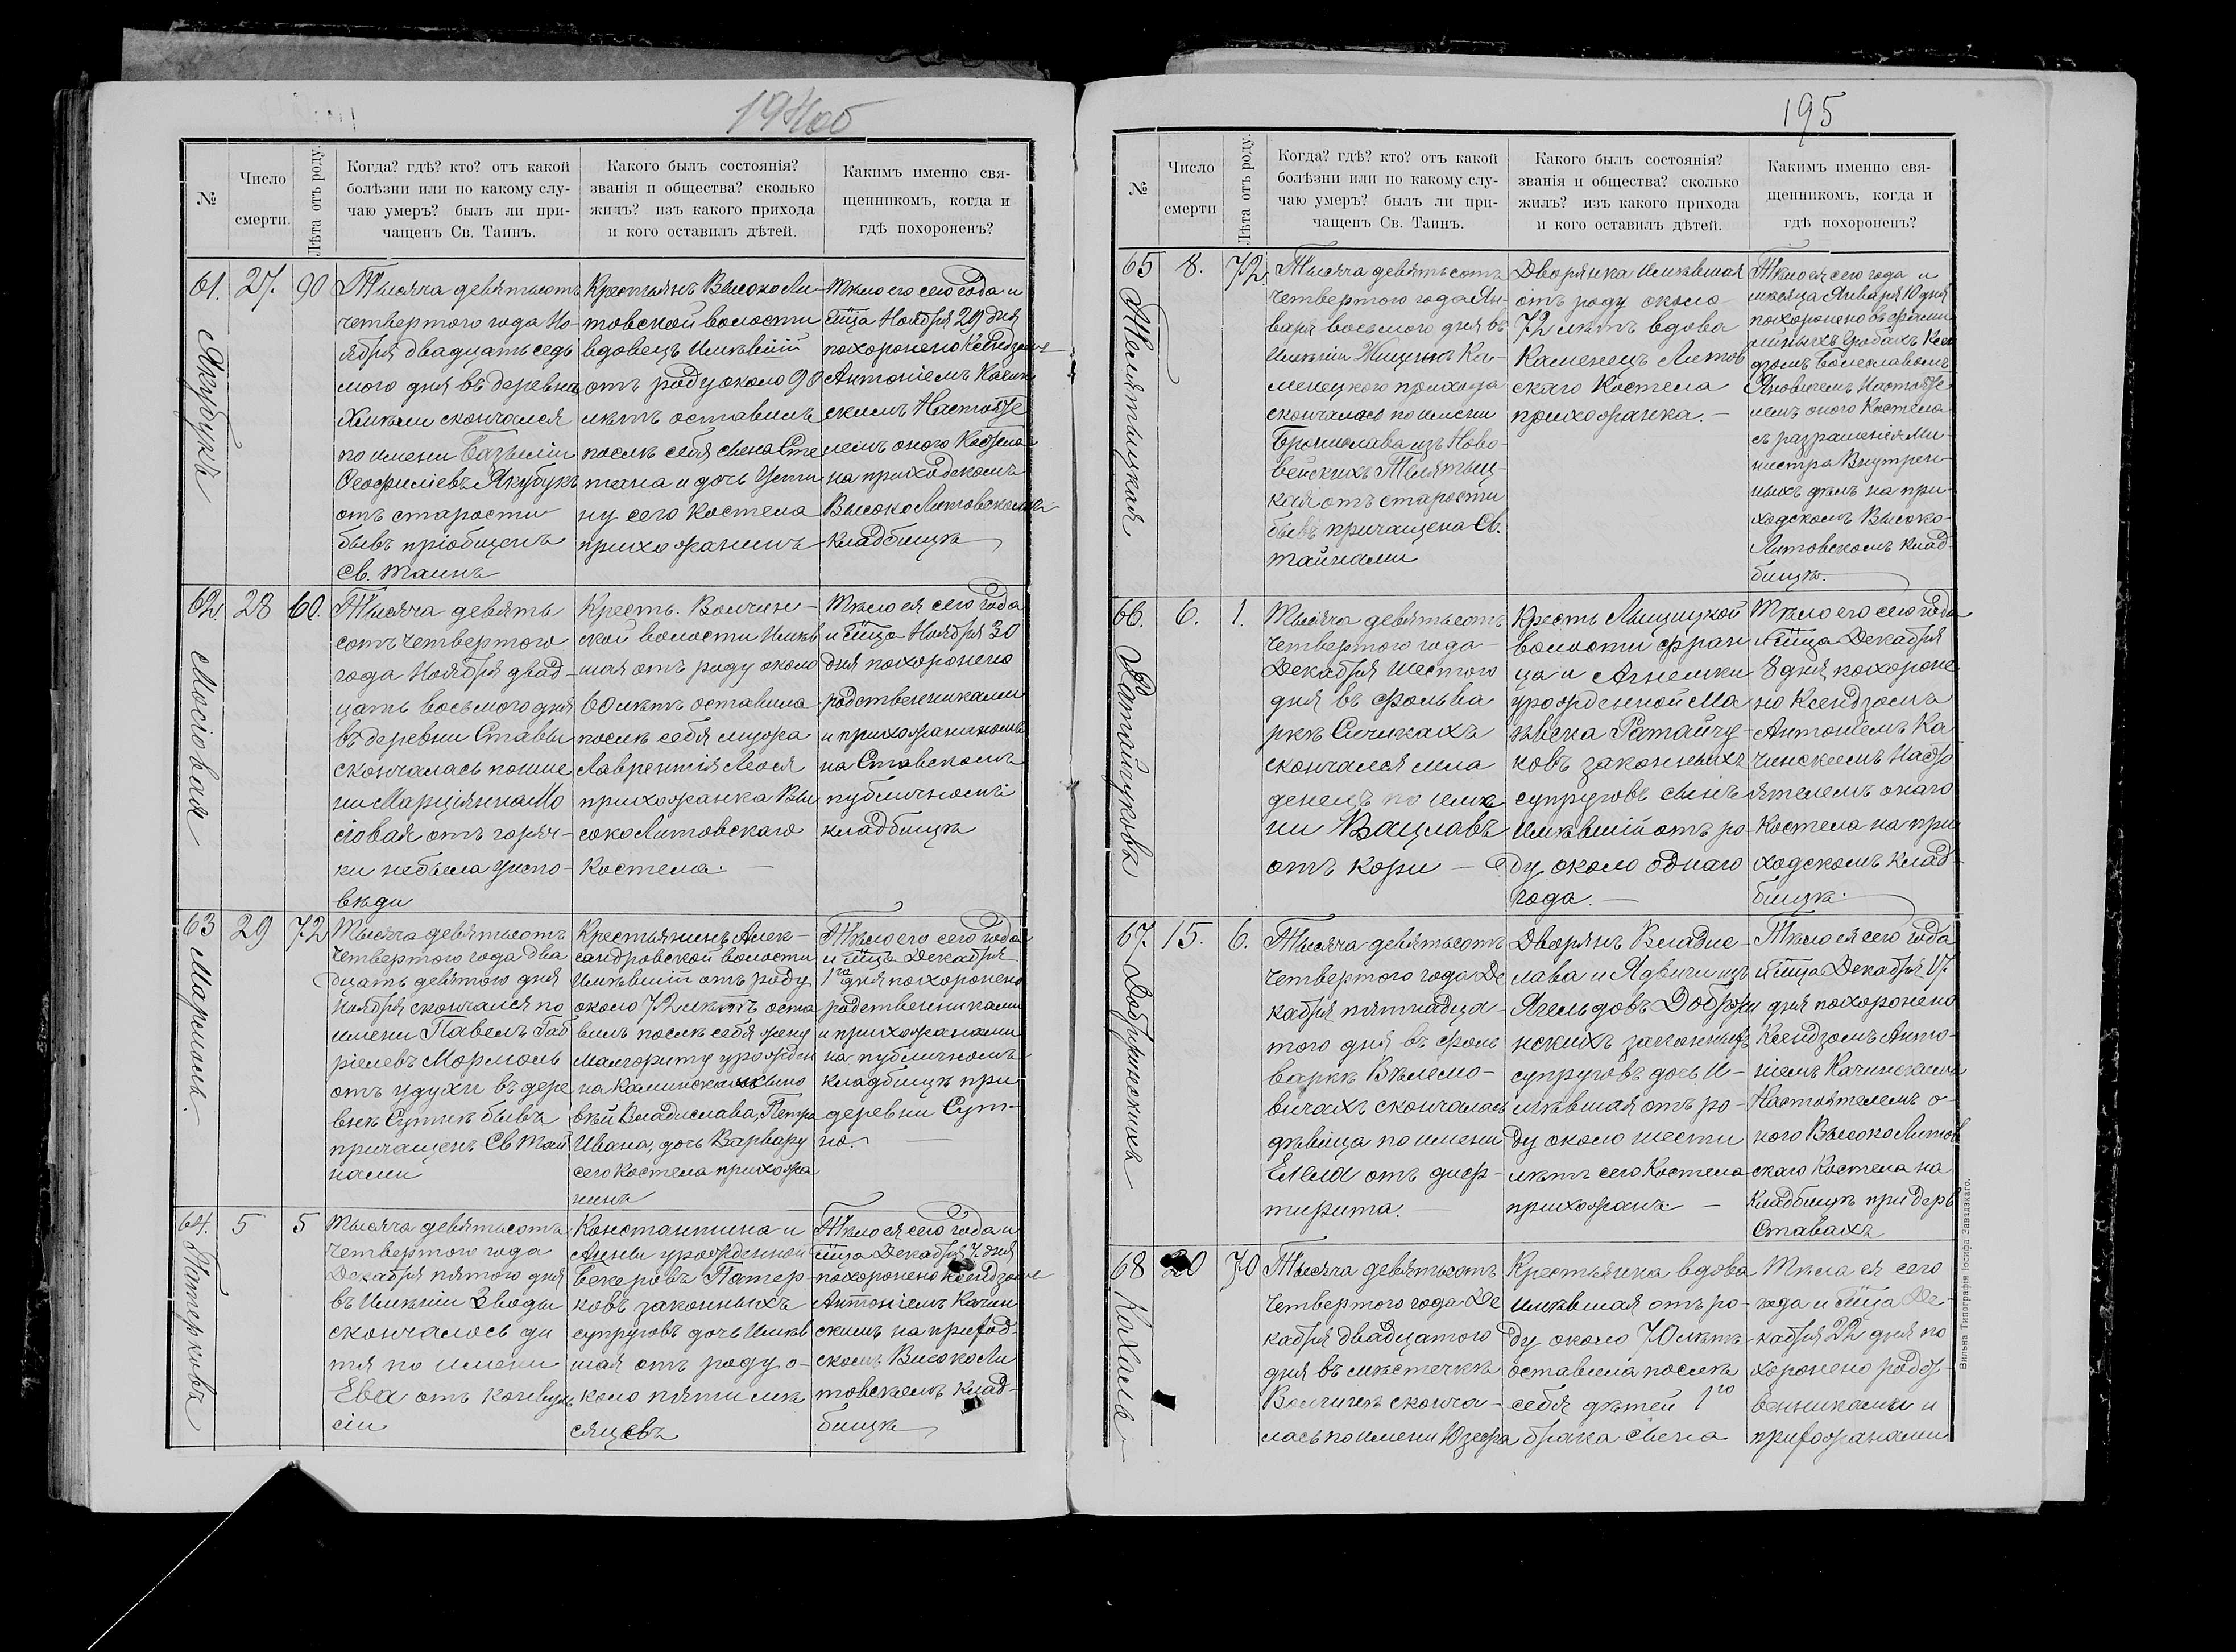 194об
№
Число
смерти.
Лѣта отъ роду.
Когда? гдѣ? кто? отъ какой
болѣзни или по какому слу-
чаю умеръ? былъ ли при-
чащенъ Св. Таинъ.
Какого былъ состоянія?
званія и общества? сколько
жилъ? изъ какого прихода
и кого оставилъ дѣтей.
Какимъ именно свя-
щенникомъ, когда и
гдѣ похороненъ?
61.
27.
90
Якубукъ
Тысяча девятьсотъ
четвертого года Но-
ября двадцать седь
мого дня въ деревнѣ
скончался
по имени Базылій
Ѳеофиліевъ Якубукъ
отъ старости
бывъ пріобщенъ
Св. Таинъ
Крестьянъ Высоко Ли-
товской волости
вдовецъ имѣвшій
отъ роду около 90
лѣтъ оставилъ
послѣ себя сына Сте
пана и дочь Усти
ну сего Костела
прихожанинъ
Тѣло его сего года и
мѣсяца Ноября 29 дня
похоронено Ксендзомъ
Антоніемъ Качин
скимъ Настояте
лемъ оного Костела
на приходскомъ
Высоко Литовскомъ
кладбищѣ
62.
28
60.
Мосіовая
Тысяча девять
сотъ четвертого
года Ноября двад-
цать восьмого дня
въ деревни Ставы
скончалась по име
ни Марціянна Мо
сіовая отъ горяч-
ки не была у испо-
вѣди
Кресть. Волчин-
ской волости имѣв
шая отъ роду около
60 лѣтъ оставила
послѣ себя мужа
Лаврентія Мося
прихожанка Вы
соко Литовскаго
Костела.
Тѣло ея сего года
и мца Ноября 30
дня похоронено
родственниками
и прихожанами
на Ставскомъ
публичномъ
кладбищѣ
63
29
72
Мармоль.
Тысяча девятьсотъ
четвертого года два
дцать девятого дня
Ноября скончался по
имени Павелъ Габ
ріелевъ Мормоль
отъ удухи въ дере
внѣ Сутнѣ бывъ
причащенъ Св Тай
нами
Крестьянинъ Алек-
сандровской волости
имѣвшій отъ роду
около 72 лѣтъ оста
вилъ послѣ себя жену
Малгориту урожден
на Калинска сыно
вѣй Владислава, Петра
Ивана, дочь Варвару
сего Костела прихожа
нинъ
Тѣло его сего года
и мца Декабря
1го дня похоронено
родственниками
и прихожанами
на публичномъ
кладбищѣ при
деревни Сут-
но.
64.
5
5
Патерковъ
Тысяча девятьсотъ
четвертого года
Декабря пятого дня
въ имѣніи Зводы
скончалось ди
тя по имени
Ева отъ конвуль
сіи
Константина и
Анны урожденной
Бекеровъ Патер-
ковъ законныхъ
супруговъ дочь имѣв
шая отъ роду о-
коло пяти мѣ
сяцевъ
Тѣло ея сего года и
мца Декабря 7 дня
похоронено Ксендзомъ
Антоніемъ Качин
скимъ на приход-
скомъ Высоко Ли
товскомъ клад-
бищѣ
195
№
Число
смерти
Лѣта отъ роду.
Когда? гдѣ? кто? отъ какой
болѣзни или по какому слу-
чаю умеръ? былъ ли при-
чащенъ Св. Таинъ.
Какого былъ состоянія?
званія и общества? сколько
жилъ? изъ какого прихода
и кого оставилъ дѣтей.
Какимъ именно свя-
щенникомъ, когда и
гдѣ похороненъ?
65
8.
72.
Тысяча девятьсотъ
четвертого года Ян-
варя восьмого дня въ
имѣніи Ка-
менецкого прихода
скончалась по имени
Бронислава изъ Ново-
вейскихъ
кая отъ старости
бывъ причащена Св.
тайнами
Дворянка имѣвшая
отъ роду около
72 лѣтъ вдова
Каменецъ Литов
скаго Костела
прихожанка.
Тѣло ея сего года и
мѣсяца Января 10 дня
похоронено въ фами
лійныхъ гробахъ Ксен
дзомъ Болеславомъ
Яновичемъ Настояте
лемъ оного Костела
съ разрашенія Ми-
нистра Внутрен-
ныхъ дѣлъ на при-
ходскомъ Высоко-
Литовскомъ клад-
бищѣ.
66.
6.
1.
Ратайчуковъ
Тысяча девятьсотъ
четвертого года
Декабря шестого
дня въ фольва
ркѣ Сичикахъ
скончался мла
денецъ по име
ни Вацлавъ
отъ кори
Кресть
волости Фран
ца и Агнешки
урожденной Ма
Ратайчу-
ковъ законныхъ
супруговъ сынъ
имѣвшій отъ ро-
ду около одного
года.
Тѣло его сего года
и мца Декабря
8 дня похороне
но Ксендзомъ
Антоніемъ Ка
чинскимъ Насто
ятелемъ онаго
Костела на при
ходскомъ клад-
бищѣ.
67.
15.
6.
Добржинскихъ
Тысяча девятьсотъ
четвертого года Де
кабря пятнадца-
того дня въ фоль
варкѣ Вѣлемо-
вичахъ скончалась
дѣвица по имени
Елена отъ диф-
тирита.
Дворянъ Владис-
лава и Ядвиги изъ
Ягельдовъ Добржи
нскихъ законныхъ
супруговъ дочь и-
мѣвшая отъ ро-
ду около шести
лѣтъ сего Костела
прихожанъ.
Тѣло ея сего года
и мца Декабря 17.
дня похоронено
Ксендзомъ Анто-
ніемъ Качинскимъ
Настоятелемъ о-
ного Высоко Литов
скаго Костела на
кладбищѣ при дерв
Ставахъ
68
20
70
Тысяча девятьсотъ
четвертого года Де
кабря двадцатого
дня въ мѣстечкѣ
Волчинѣ сконча-
лась по имени Юзефа
Крестьянка вдова
имѣвшая отъ ро-
ду около 70 лѣтъ
оставила послѣ
себя дѣтей 1го
брака сына
Тѣла ея сего
года и мца Де-
кабря 22 дня по
хоронено родст
венниками и
прихожанами
Вильна Типографія Іосифа Завадзкаго.